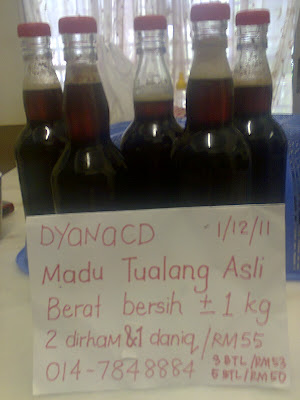 DYANACD - 1/12/11
Madu Tualang Asli
Berat bersih ± 1 kg
2 dirham &1 daniq/RM55
014-7848884 3 BTL/RM53
5 BTL/RM50